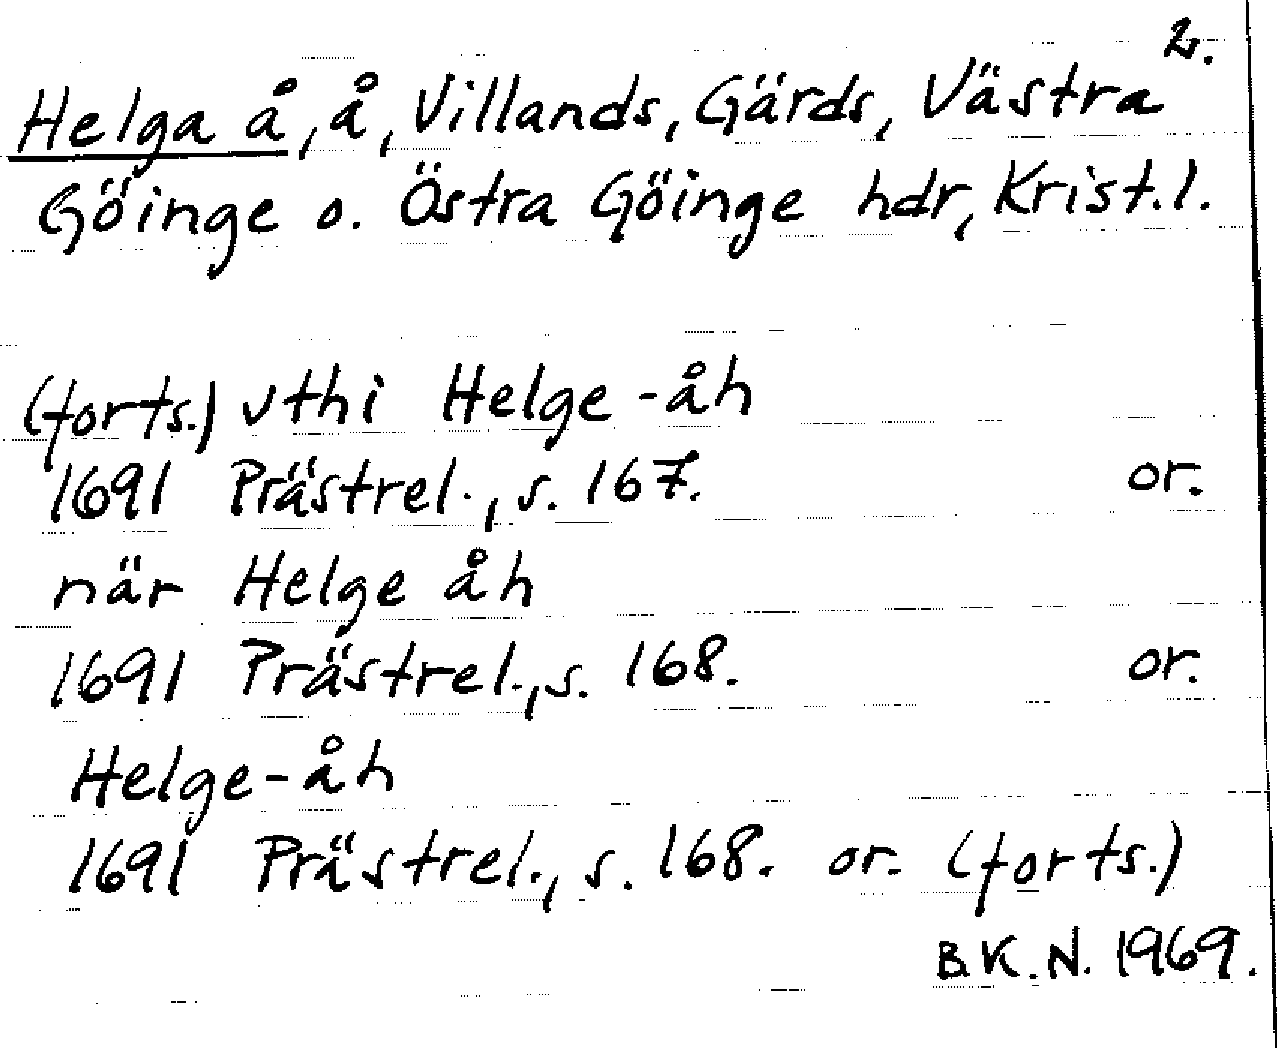 2.
Helga å, å, Villands, Gärds, Västra
Göinge o. Östra Göinge hdr, Krist.l.
(forts.) vthi Helge-åh
1691 Prästrel., s. 167. or.
när Helge åh
1691 Prästrel., s. 168. or.
Helge-åh
1691 Prästrel., s. 168. or. (forts.)
B.K.N. 1969.